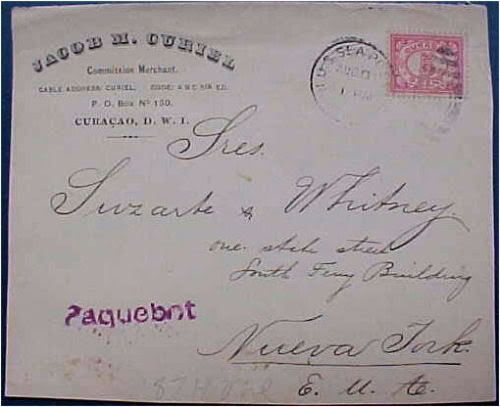 JACOB M. CURIEL
Commission Merchant.
CABLE ADDRESS: CURIEL. CODE: A B C 5TH ED.
P. O. Box Nº 150.
CURAÇAO, D. W. I.
U.S. SEA PO
CURAÇAO
Sres.
Suzarte & Whitney.
one. state street
South Ferry Building
Paquebot
Nueva York.
E. U. A.